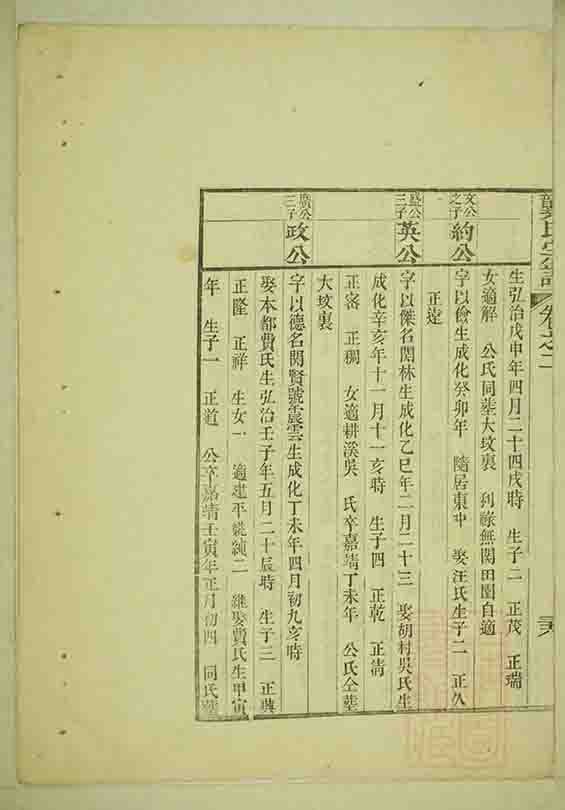 龔氏宗譜 卷之二
生弘治戊申年四月二十四戌時 生子二 正茂 正瑞
女適解 公氏同塟大坟裏 利祿無関田園自適
文公之子 約公
字以儉生成化癸卯年 隨居東 娶汪氏生子二 正久
正逵
盛公三子 英公
字以傑名閏林生成化乙巳年二月二十三 娶胡村吳氏生
成化辛亥年十一月十一亥時 生子四 正乾 正淸
正容 正稠 女適耕溪吳 氏卒嘉靖丁未年 公氏仝塟
大坟裏
廣公三子 政公
字以德名閏賢號雲生成化丁未年四月初九亥時
娶本都費氏生弘治壬子年五月二十辰時 生子三 正典
正隆 正祥 生女一 適建平 純二 継娶費氏生甲寅
年 生子一 正道 公卒嘉靖壬寅年正月初四 同氏塟